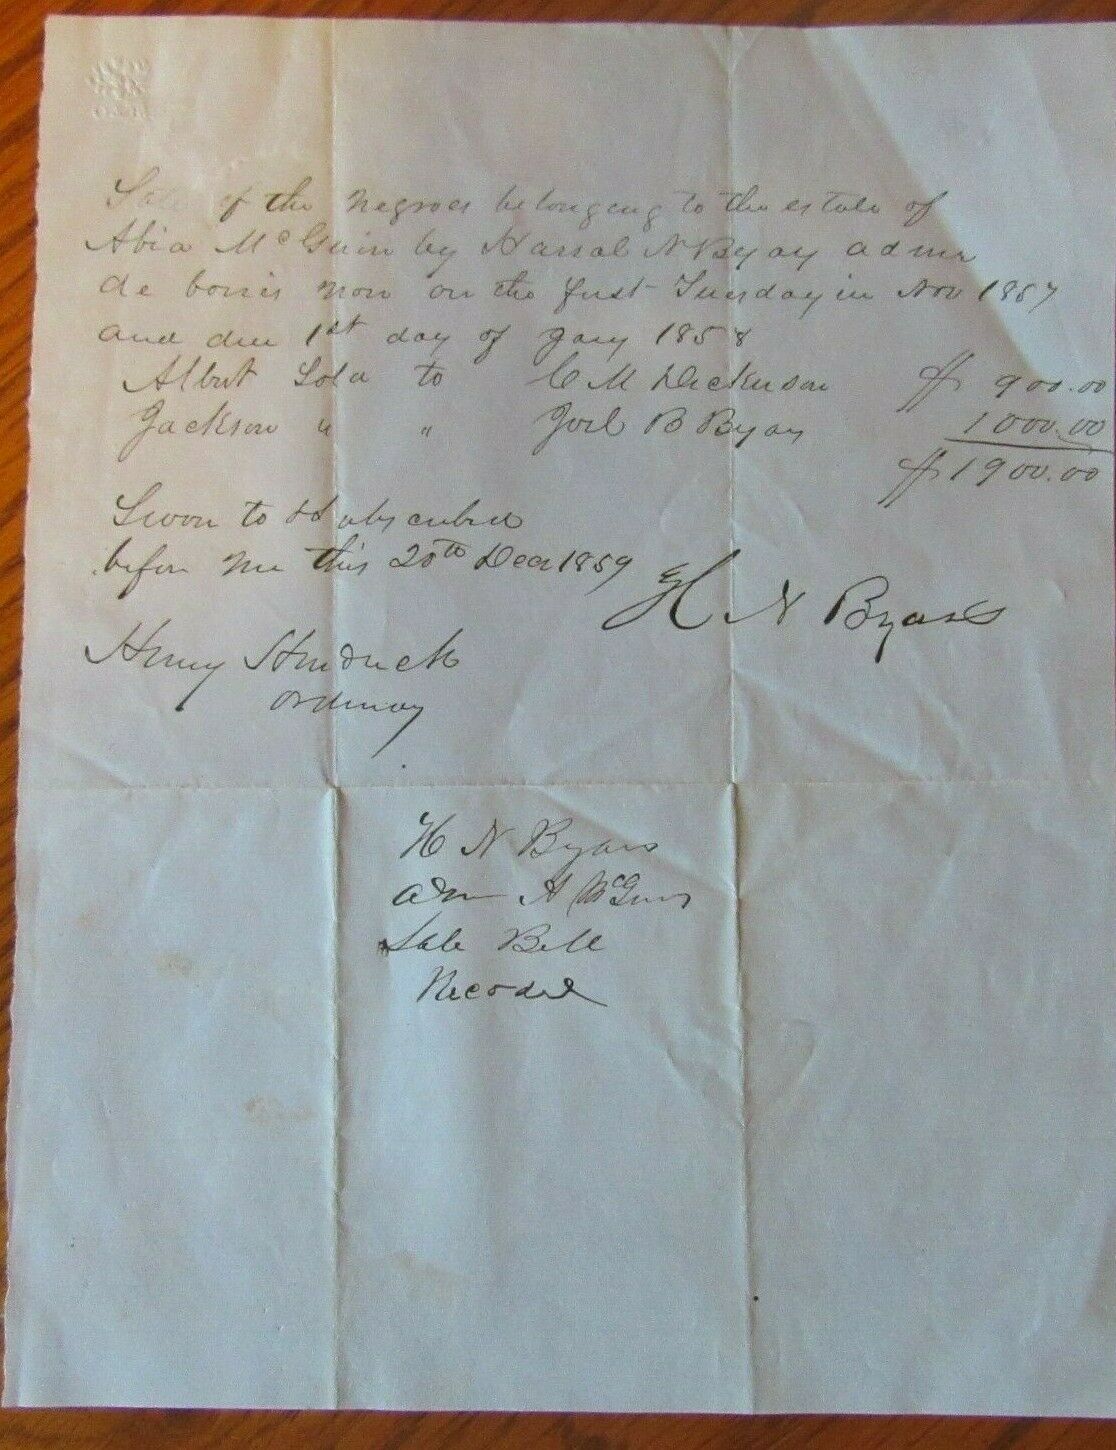 Sale of the negroes belonging to the estate of
Abia McGuin by Harral N Byay admr
de bonis non on the first Tuesday in Nov 1857
and due 1st day of Jany 1858
Albert Sold to C M Dickinson $ 900.00
Jackson " " Joel B Byay 1000.00
$1900.00
Sworn to & subscribed
before me this 20th Decr 1859
H N Byars
Henry Hendrick
Ordinary
H N Byars
Adm A McGuin
Sale Bill
Recorded